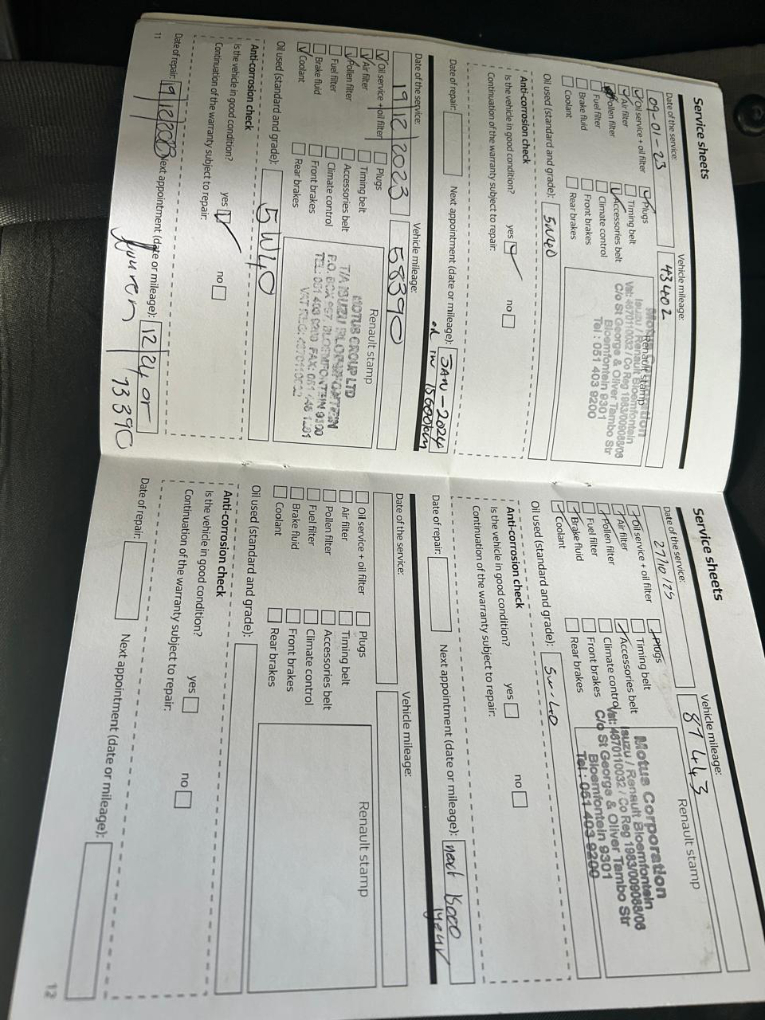 Service sheets
Date of the service:
09-01-23
Vehicle mileage:
43402
Oil service + oil filter
Plugs
Air filter
Timing belt
Pollen filter
Accessories belt
Fuel filter
Climate control
Brake fluid
Front brakes
Coolant
Rear brakes
Renault stamp
Isuzu / Renault Bloemfontein
Vat: 4870110032 / Co Reg 1983/009088/06
C/o St George & Oliver Tambo Str
Bloemfontein 9301
Tel : 051 403 9200
Oil used (standard and grade): 5W40
Anti-corrosion check
Is the vehicle in good condition?
yes
no
Continuation of the warranty subject to repair:
Date of repair:
Next appointment (date or mileage): JAN-2024
or in 15000km
Date of the service:
19/12/2023
Vehicle mileage:
58390
Oil service + oil filter
Plugs
Air filter
Timing belt
Pollen filter
Accessories belt
Fuel filter
Climate control
Brake fluid
Front brakes
Coolant
Rear brakes
Renault stamp
MOTUS GROUP LTD
T/A ISUZU BLOEMFONTEIN
Oil used (standard and grade): 5W40
Anti-corrosion check
Is the vehicle in good condition?
yes
no
Continuation of the warranty subject to repair:
Date of repair:
Next appointment (date or mileage): 12/24 or
73390
11
Service sheets
Date of the service:
27/10/25
Vehicle mileage:
87443
Oil service + oil filter
Plugs
Air filter
Timing belt
Pollen filter
Accessories belt
Fuel filter
Climate control
Brake fluid
Front brakes
Coolant
Rear brakes
Renault stamp
Motus Corporation
Isuzu / Renault Bloemfontein
Vat: 4870110032 / Co Reg 1983/009088/06
C/o St George & Oliver Tambo Str
Bloemfontein 9301
Tel : 051 403 9200
Oil used (standard and grade): 5w-40
Anti-corrosion check
Is the vehicle in good condition?
yes
no
Continuation of the warranty subject to repair:
Date of repair:
Next appointment (date or mileage): next 15000
1year
Date of the service:
Vehicle mileage:
Oil service + oil filter
Plugs
Air filter
Timing belt
Pollen filter
Accessories belt
Fuel filter
Climate control
Brake fluid
Front brakes
Coolant
Rear brakes
Renault stamp
Oil used (standard and grade):
Anti-corrosion check
Is the vehicle in good condition?
yes
no
Continuation of the warranty subject to repair:
Date of repair:
Next appointment (date or mileage):
12